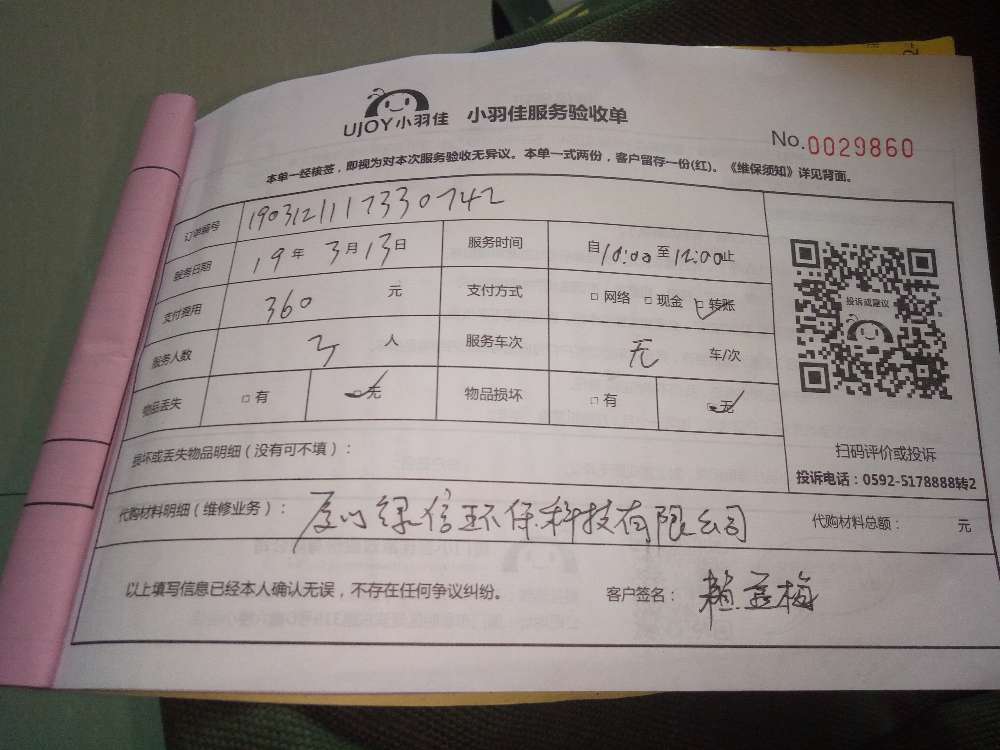 UJOY小羽佳 小羽佳服务验收单
No.0029860
本单一经核签，即视为对本次服务验收无异议。本单一式两份，客户留存一份(红)。《维保须知》详见背面。
订单编号 1903121117330742
服务日期 19年3月13日 服务时间 自10:00至12:00止
支付费用 360 元 支付方式 □网络 □现金 □转账
服务人数 3 人 服务车次 无 车/次
物品丢失 □有 □无 物品损坏 □有 □无
投诉或建议
扫码评价或投诉
投诉电话：0592-5178888转2
损坏或丢失物品明细（没有可不填）：
代购材料明细（维修业务）：厦门绿信环保科技有限公司 代购材料总额： 元
以上填写信息已经本人确认无误，不存在任何争议纠纷。 客户签名：